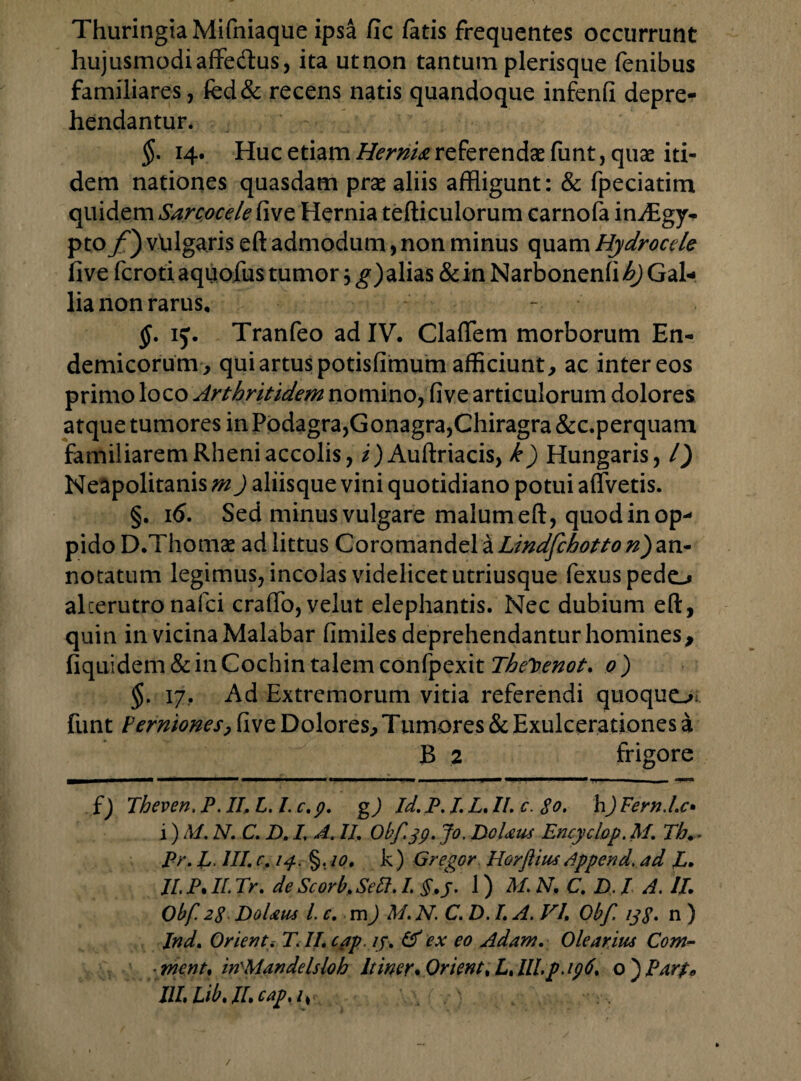 Thuringia Miſniaque ipsâ ſic ſatis frequentes occurrunt
hujusmodi affectus, ita ut non tantum plerisque ſenibus
familiares, ſed & recens natis quandoque infenſi depre-
hendantur.
§. 14. Huc etiam Herniæ referendæ ſunt, quæ iti-
dem nationes quasdam præ aliis affligunt: & ſpeciatim
quidem Sarcocele ſive Hernia teſticulorum carnoſa in Ægy-
pto f) vulgaris eſt admodum, non minus quam Hydrocele
ſive ſcroti aquoſus tumor; g) alias & in Narbonenſi h) Gal-
lia non rarus.
§. 15. Tranſeo ad IV. Claſſem morborum En-
demicorum, qui artus potisſimum afficiunt, ac inter eos
primo loco Arthritidem nomino, ſive articulorum dolores
atque tumores in Podagra, Gonagra, Chiragra &c. perquam
familiarem Rheni accolis, i) Auſtriacis, k) Hungaris, l)
Neapolitanis m) aliisque vini quotidiano potui aſſvetis.
§. 16. Sed minus vulgare malum eſt, quod in op-
pido D. Thomæ ad littus Coromandel à Lindſchotto n) an-
notatum legimus, incolas videlicet utriusque ſexus pede
alterutro naſci craſſo, velut elephantis. Nec dubium eſt,
quin in vicina Malabar ſimiles deprehendantur homines,
ſiquidem & in Cochin talem conſpexit Thevenot. o)
§. 17. Ad Extremorum vitia referendi quoque
ſunt Perniones, ſive Dolores, Tumores & Exulcerationes à
B 2 frigore
f) Theven. P. II. L. I. c. 9. g) Id. P. I. L. II. c. 80. h) Fern. l. c.
i) M. N. C. D. I. A. II. Obſ. 39. Jo. Dolæus Encyclop. M. Th.
Pr. L. III. c. 14. §. 10. k) Gregor Horſtius Append. ad L.
II. P. II. Tr. de Scorb. Sect. I. §. 5. l) M. N. C. D. I A. II.
Obſ. 28 Dolæus l. c. m) M. N. C. D. I. A. VI. Obſ. 138. n)
Ind. Orient. T. II. cap. 15. & ex eo Adam. Olearius Com-
ment. in Mandelsloh Itiner. Orient. L. III. p. 196. o) Part.
III. Lib. II. cap. 1.